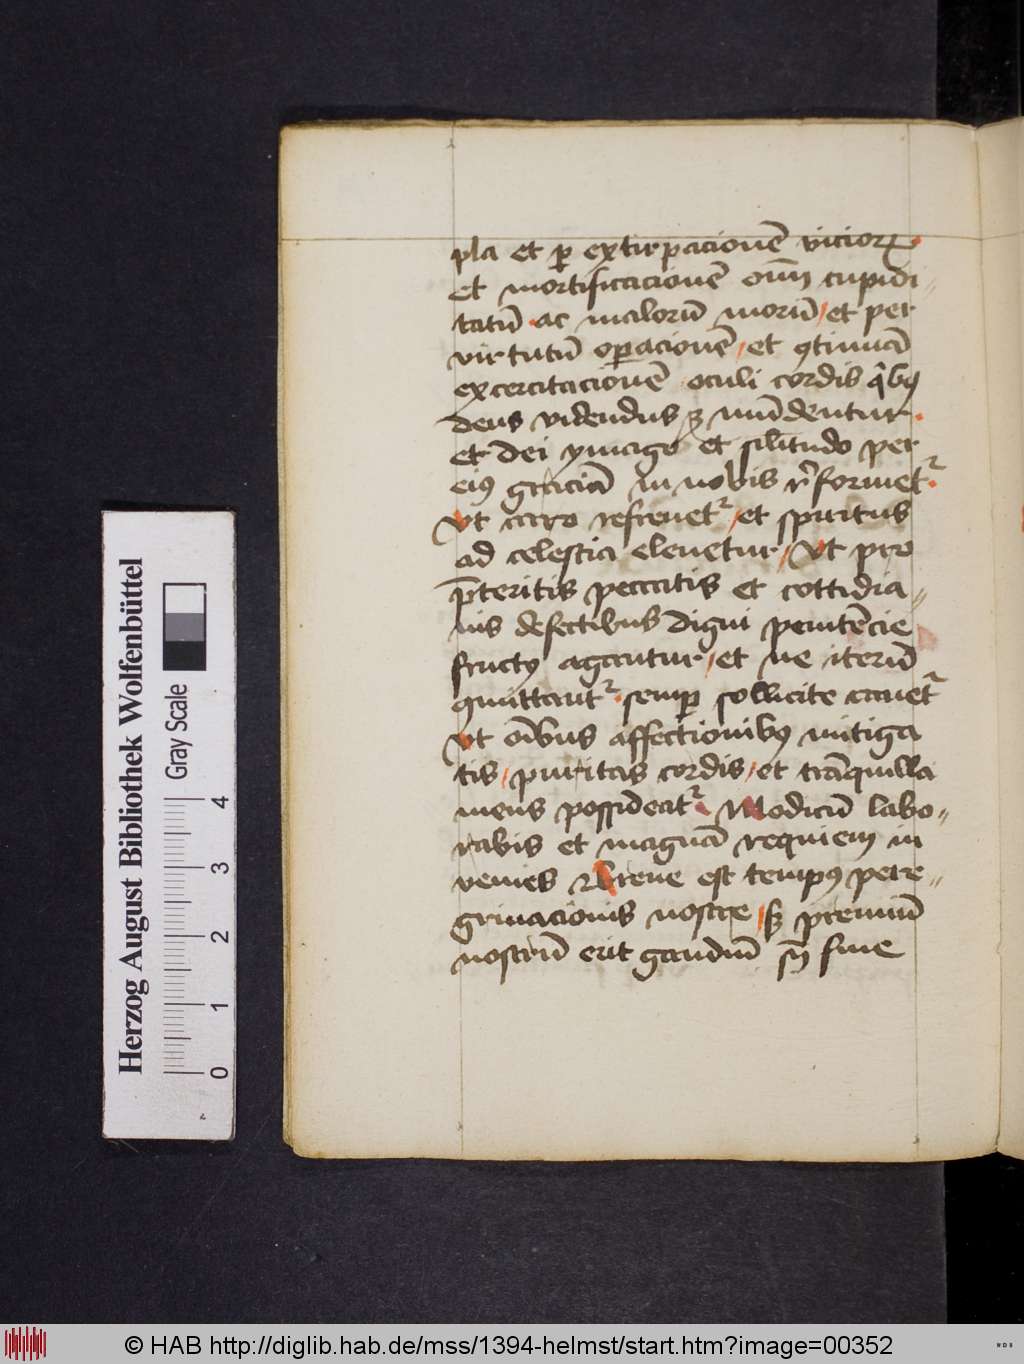 pla et ꝑ extirpacionē viciorꝝ
et mortificacionē oīm cupidi
tatū ac malorū morū / et per
virtutū oꝑacionē / et ꝯtinuā
excercitacionē oculi cordis qͥbꝰ
deus videndus ꝫ mūdentur
et dei ymago et silītudo per
eiꝰ graciā in nobis r̄formet᷑
Vt caro refrenet᷑ / et spiritus
ad celestia eleuetur / Vt pro
p̄teritis peccatis et cottidia
nis defectibus digni penitēcie
fructꝰ agantur / et ne iterū
ꝯmittant᷑ semꝑ sollicite cauet᷑
Vt oībus affectionibꝰ mitiga
tis / puritas cordis / et trāquilla
mens possideat᷑ Modicū labo
rabis et magnā requiem in
venies Breue est tempꝰ pere
grinacionis nostre / sꝫ premiū
nostrū erit gaudiū sn̄ fine
Herzog August Bibliothek Wolfenbüttel
Gray Scale
0 1 2 3 4
© HAB http://diglib.hab.de/mss/1394-helmst/start.htm?image=00352